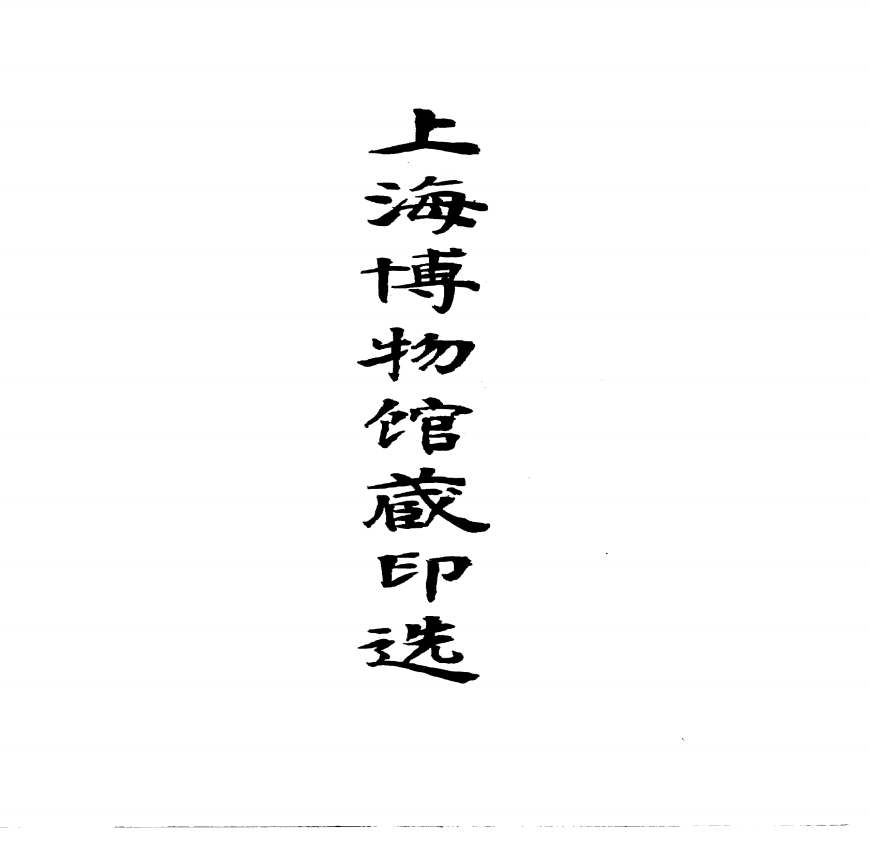 上海博物馆藏印选